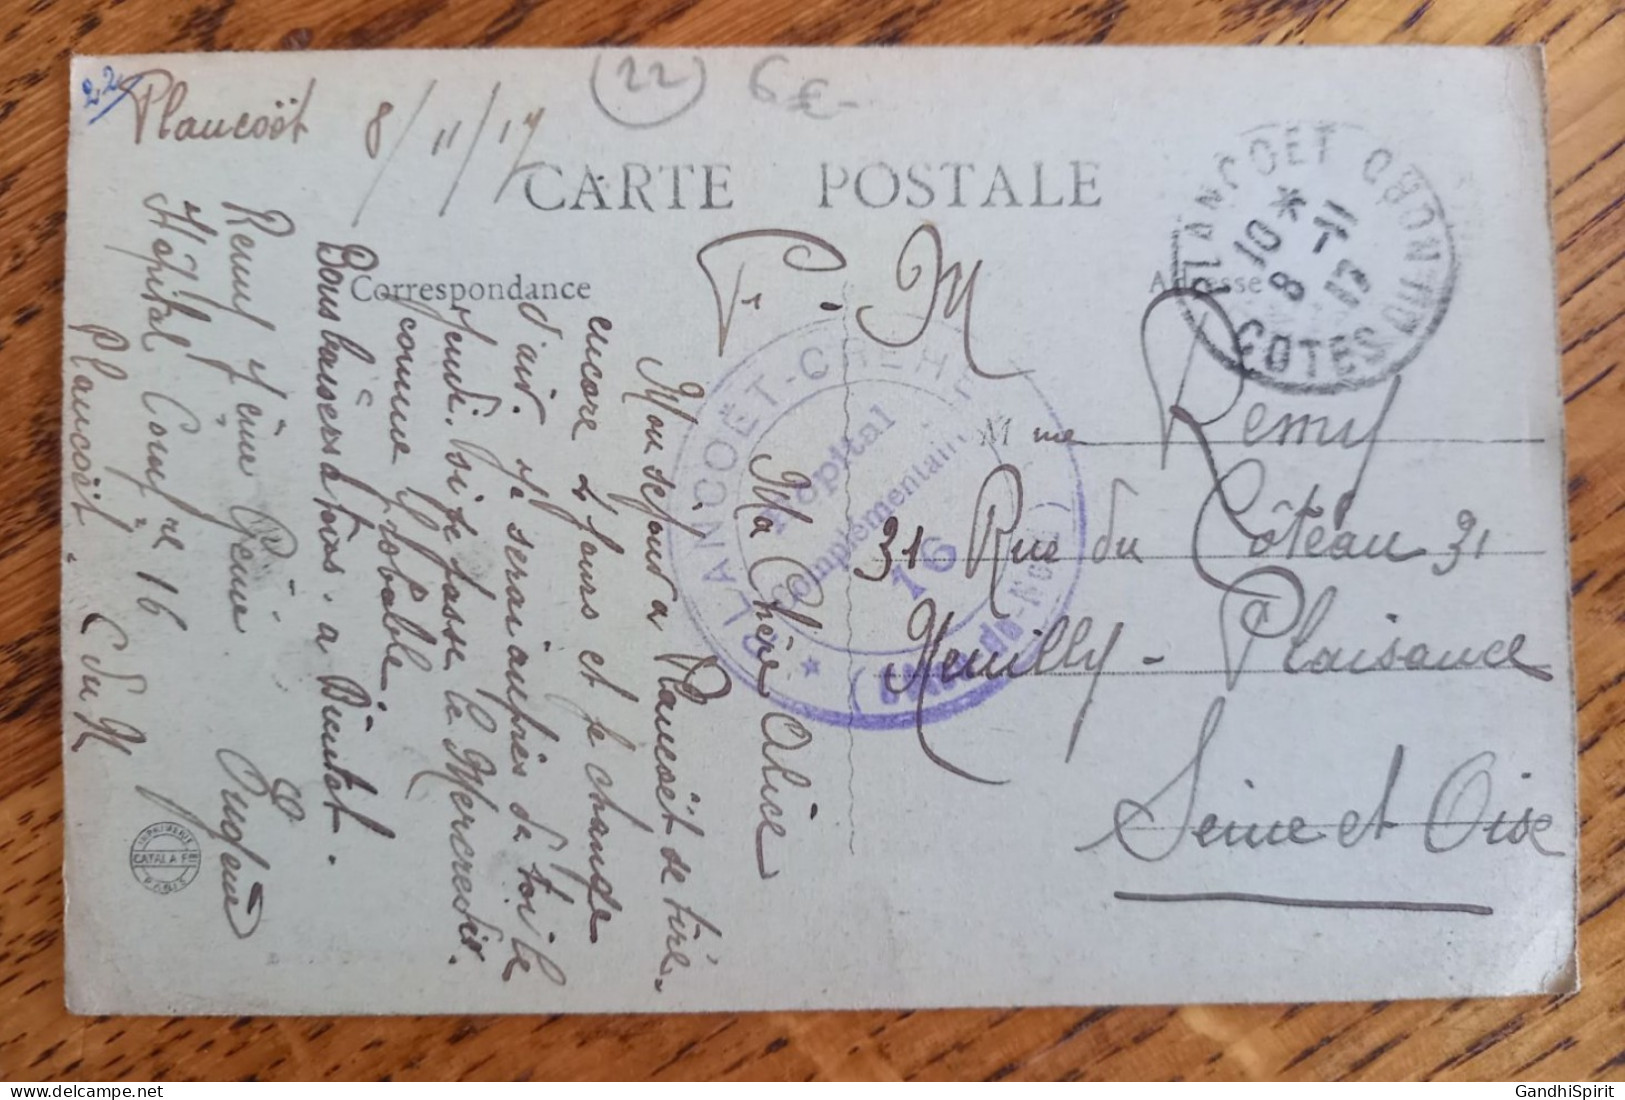 22
Plancoët 8/11/17
(22) 6€-
CARTE POSTALE
Correspondance
Adresse
F. M
PLANCOËT
10 * 8 -11
COTES DU NORD
PLANCOËT-C
Hôpital
Complémentaire
16
(Côtes-du-Nord)
*
Ma Chère Alice
Mon séjour a Plancoët se tire
encore 4 jours et je change
d'air. Je serai auprès de toi le
Jeudi. Si je passe le Mercredi
comme probable.
Bons baisers a tous. a Bientot.
Eugène
Remy Eugène
Hopital Compre 16
Plancoët. C du N
Mme Remy
31 Rue du Côteau 31
Neuilly-Plaisance
Seine et Oise
IMPRIMERIE
CATALA FRES
PARIS
GandhiSpirit